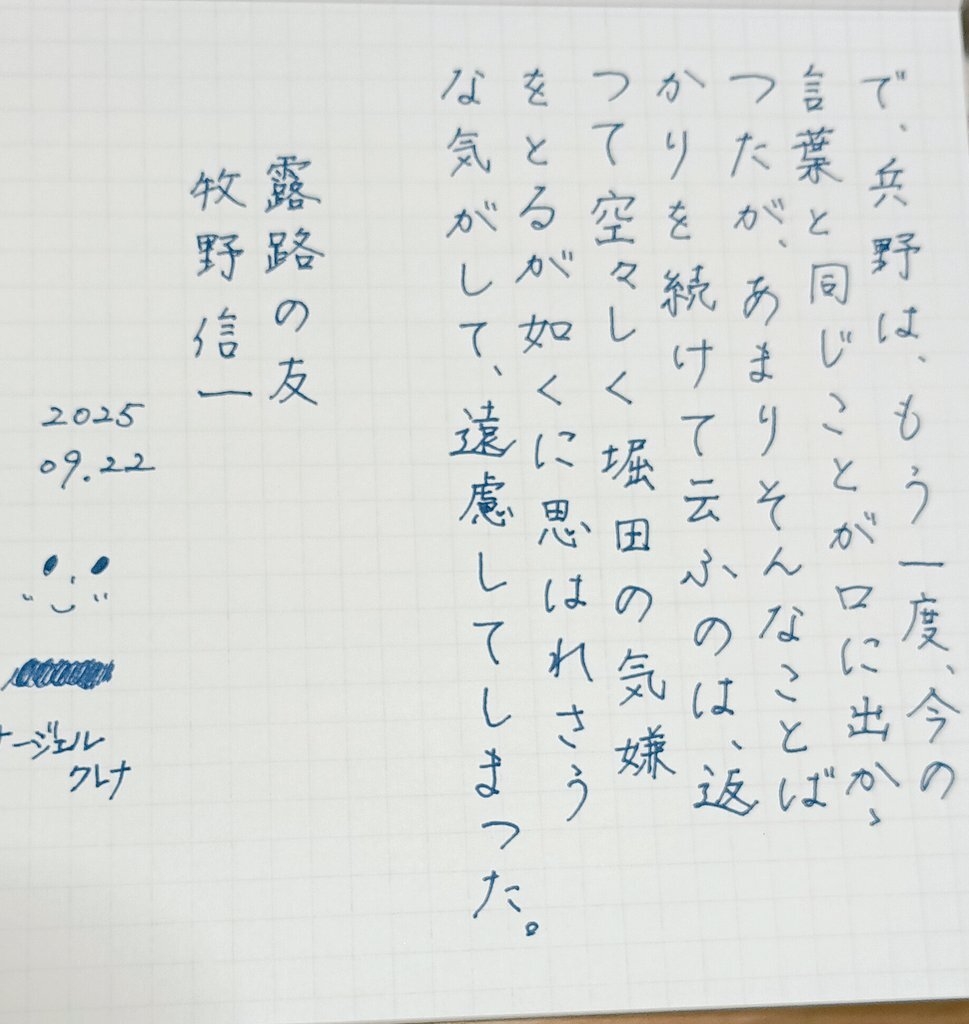 で、兵野は、もう一度、今の
言葉と同じことが口に出かゝ
つたが、あまりそんなことば
かりを続けて云ふのは、返
つて空々しく堀田の気嫌
をとるが如くに思はれさう
な気がして、遠慮してしまつた。
露路の友
牧野信一
2025
09.22
ージェル
クレナ